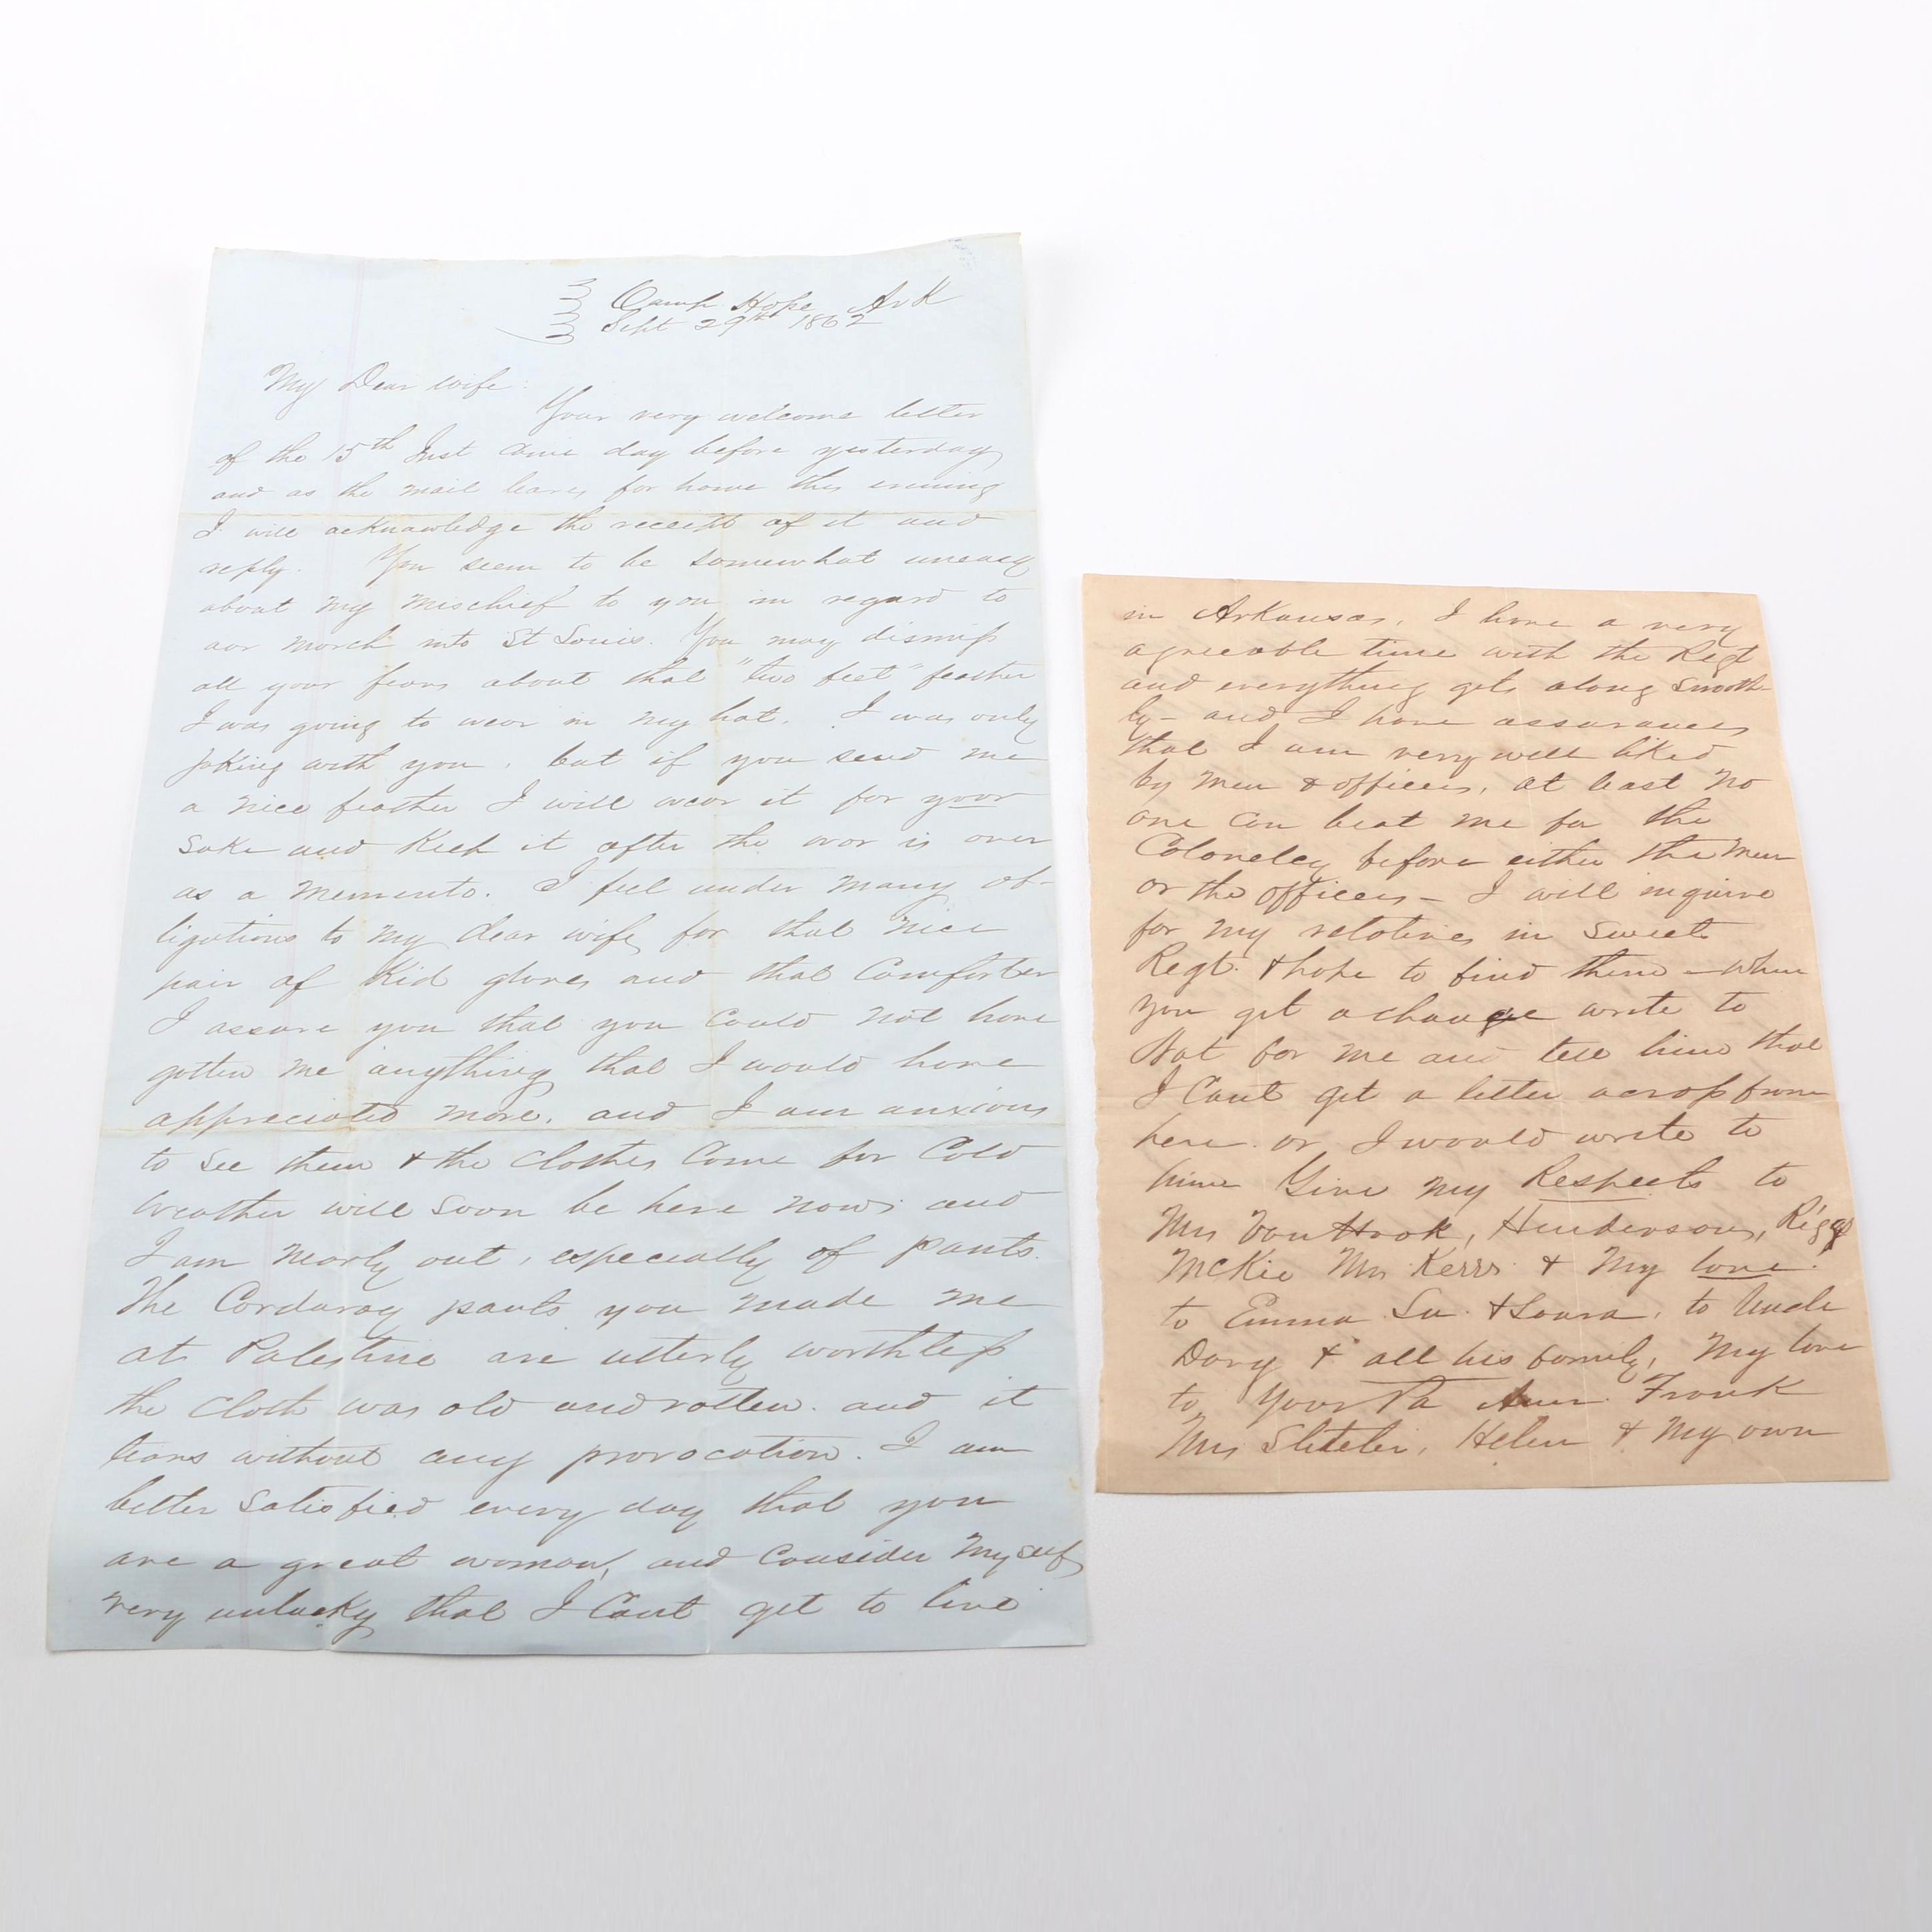 Camp Hope Ark
Sept 29th 1862
My Dear wife:
Your very welcome letter
of the 15th Inst came day before yesterday
and as the mail leaves for home this evening
I will acknowledge the receipt of it and
reply. You seem to be somewhat uneasy
about my mischief to you in regard to
our march into St Louis. You may dismiss
all your fears about that "two feet" feather
I was going to wear in my hat. I was only
joking with you, but if you send me
a nice feather I will wear it for your
sake and keep it after the war is over
as a memento. I feel under many ob-
ligations to my dear wife for that nice
pair of Kid gloves and that Comforter
I assure you that you could not have
gotten me anything that I would have
appreciated more, and I am anxious
to see them & the clothes come for cold
weather will soon be here now and
I am nearly out, especially of pants.
The Corduroy pants you made me
at Palestine are utterly worthless
the cloth was old and rotten. and it
tears without any provocation. I am
better satisfied every day that you
are a great woman, and consider myself
very unlucky that I Cant get to live
in Arkansas. I have a very
agreeable time with the Regt
and everything gets along smooth-
ly - and I have assurances
that I am very well liked
by men & officers, at least no
one can beat me for the
Colonelcy before either the men
or the officers - I will inquire
for my relatives in Sweet
Regt. & hope to find them - when
you get a chance write to
Nat for me and tell him that
I Cant get a letter across from
here or I would write to
him Give my Respects to
Mrs VanHook, Henderson, Riggs
McKie Mrs Kerrs & My love
to Emma Su & Loura, to Uncle
Davy & all his family, My love
to Your Pa Ann Frank
Mrs Helen & My own